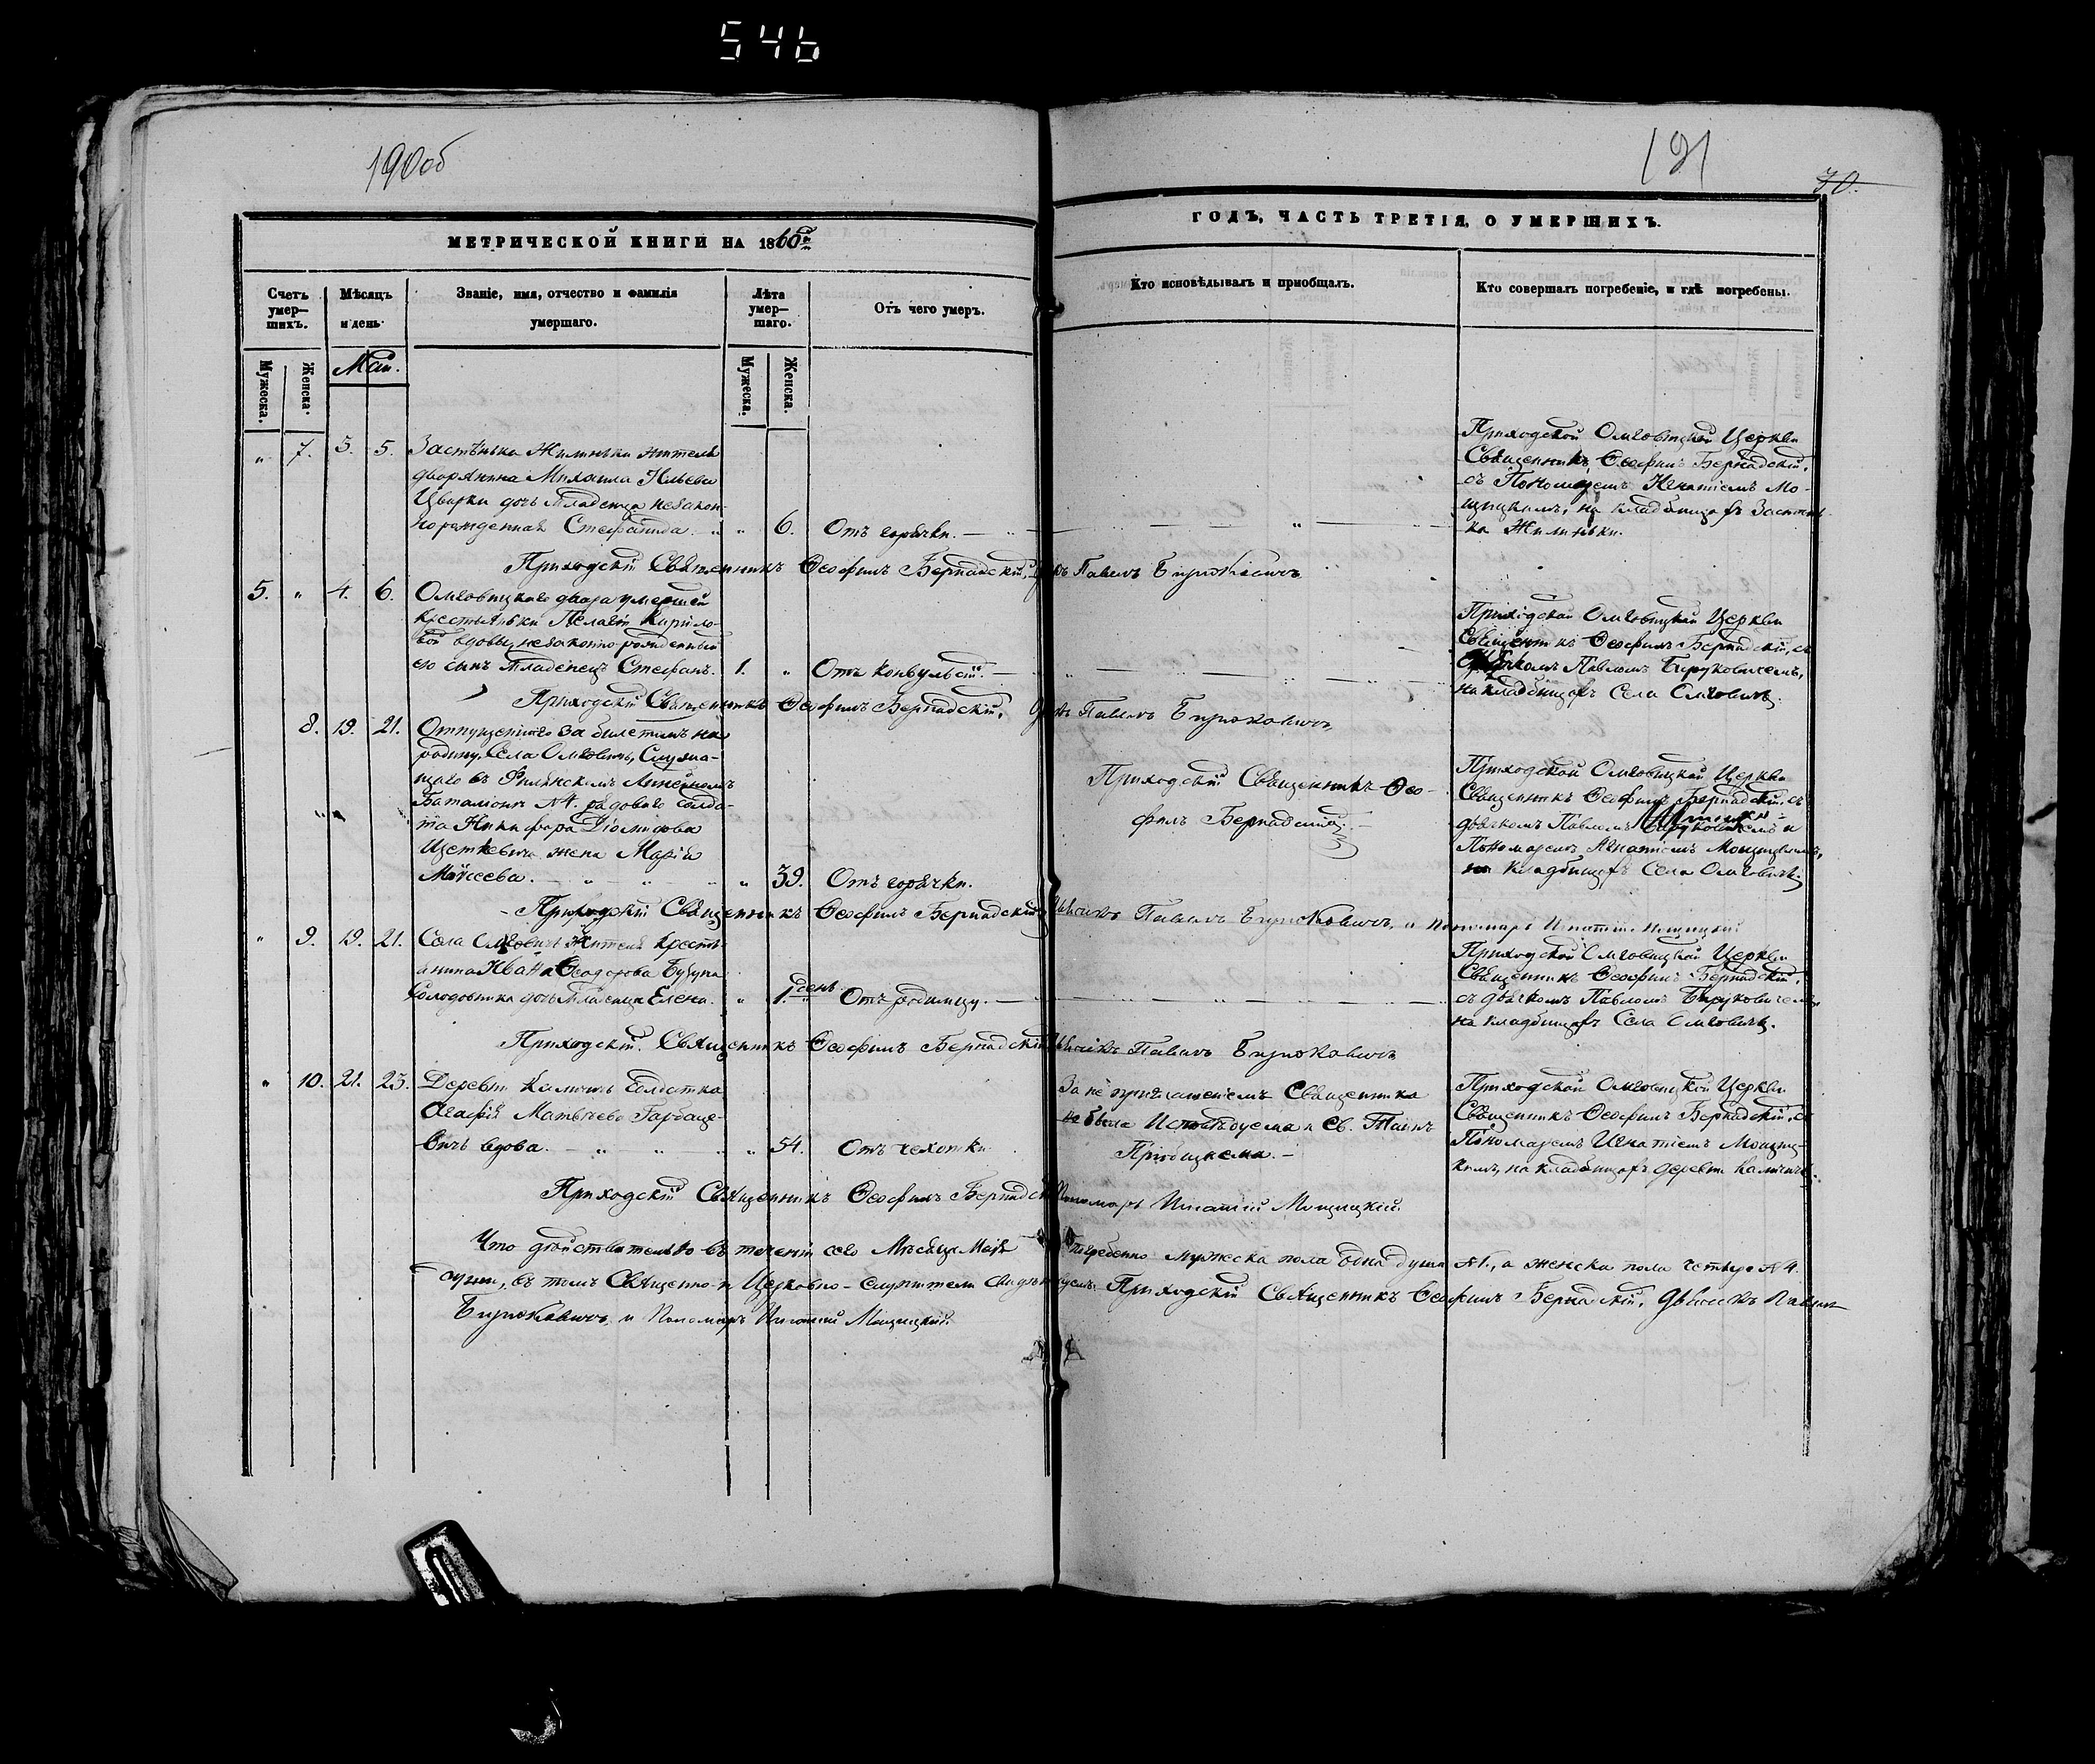 546
190об
191
70.
МЕТРИЧЕСКОЙ КНИГИ НА 1866й
ГОДЪ, ЧАСТЬ ТРЕТІЯ, О УМЕРШИХЪ.
Счетъ умер-
шихъ.
Мѣсяцъ
и день.
Званіе, имя, отчество и фамилія
умершаго.
Лѣта
умер-
шаго.
Отъ чего умеръ.
Кто исповѣдывалъ и пріобщалъ.
Кто совершалъ погребеніе, и гдѣ погребены.
Мужеска.
Женска.
Май.
Мужеска.
Женска.
" 7. 5. 5.
Застѣнка Жилинки жителя
дворянина Михаила Ильева
Цвирки дочь младенца незакон-
норожденная Стефанида. " " 6. Отъ горячки.
Приходской Омговицкой Церкви
Священникъ Ѳеофилъ Бернадскій,
съ Пономаремъ Игнатіемъ Мо-
щицкимъ, на кладбищахъ Застѣн-
ка Жилинки.
Приходскій Священникъ Ѳеофилъ Бернадскій, Павелъ Бируковичъ
5. " 4. 6.
Омговицкаго двора умершей
крестьянки Пелагіи Кирило-
вой вдовы, незаконно рожденный
ею сынъ младенецъ Стефанъ. 1. " Отъ конвульсій.
Приходской Омговицкой Церкви
Священникъ Ѳеофилъ Бернадскій, съ
дьячкомъ Павломъ Бируковичемъ,
на кладбищахъ Села Омговичъ.
Приходскій Священникъ Ѳеофилъ Бернадскій, Павелъ Бируковичъ,
8. 19. 21.
Отпущеннаго за билетомъ на
родину, Села Омговичъ, Служа-
щаго въ Линейномъ
Баталіонѣ №4. рядоваго солда-
та Никифора Діомидова
жена Марія
Моисеева. " 39. Отъ горячки.
Приходскій Священникъ Ѳео-
филъ Бернадскій.
Приходской Омговицкой Церкви
Священникъ Ѳеофилъ Бернадскій, съ
дьячкомъ Павломъ Бируковичемъ и
Пономаремъ Игнатіемъ Мощицкимъ,
на кладбищахъ Села Омговичъ.
Приходскій Священникъ Ѳеофилъ Бернадскій, Дьячекъ Павелъ Бируковичъ, и Пономарь Игнатій Мощицкій
" 9. 19. 21.
Села Омговичъ жителя кресть-
янина Ивана Ѳеодорова
дочь младенца Елена. " 1 день. Отъ родимцу.
Приходской Омговицкой Церкви
Священникъ Ѳеофилъ Бернадскій,
съ дьячкомъ Павломъ Бируковичемъ,
на кладбищахъ Села Омговичъ.
Приходскій Священникъ Ѳеофилъ Бернадскій Дьячекъ Павелъ Бируковичъ
" 10. 21. 23.
Деревни Калчичъ Солдатка
Агафія Матвѣева Гарбаце-
вичъ вдова. " 54. Отъ чехотки.
За не приглашеніемъ Священника
не была Исповѣдуема и Св. Таинъ
Пріобщаема.
Приходской Омговицкой Церкви
Священникъ Ѳеофилъ Бернадскій, съ
Пономаремъ Игнатіемъ Мощиц-
кимъ, на кладбищахъ деревни Калчичъ.
Приходскій Священникъ Ѳеофилъ Бернадскій Пономарь Игнатій Мощицкій.
Что дѣйствительно въ теченіи сего Мѣсяца Маія погребенно мужеска пола одна душа №1., а женска пола четыре №4.
души, въ томъ Священно и Церковно-служители свидѣтельствуемъ. Приходскій Священникъ Ѳеофилъ Бернадскій, Дьячекъ Павелъ
Бируковичъ, и Пономарь Игнатій Мощицкій.